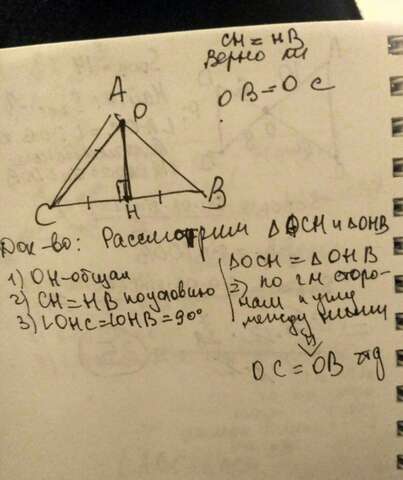 CH = HB
Верно ли
OB = OC
A
O
C
H
B
Док-во: Рассмотрим △OCH и △OHB
1) OH-общая
2) CH = HB по условию
3) ∠OHC = ∠OHB = 90°
△OCH = △OHB
⇒ по 2м сторо-
нам и углу
между ними
⇓
OC = OB чтд